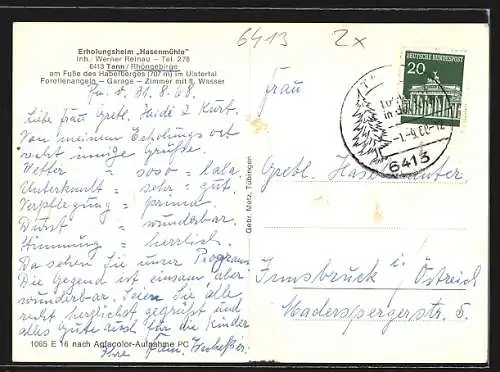 6413 2x
Erholungsheim „Hasenmühle"
Inh.: Werner Reinau – Tel. 278
6413 Tann/Rhöngebirge
am Fuße des Habelberges (707 m) im Ulstertal
Forellenangeln – Garage – Zimmer mit fl. Wasser
31.8.68.
Liebe Frau Gretl, Heidi & Kurt.
Von meinem Erholungsort
recht innige Grüße.
Wetter = soso = lala
Unterkunft = sehr = gut.
Verpflegung = prima
Durst = wunderbar.
Stimmung = herrlich.
Da sehen Sie unser Program
Die Gegend ist einsam, aber
wunderbar. Seien Sie alle
recht herzlichst gegrüßt und
alles Gute auch für die Kinder
Ihre Fam.
1065 E 16 nach Agfacolor-Aufnahme PC
Gebr. Metz, Tübingen
DEUTSCHE BUNDESPOST
20
6413
Frau
Gretl.
Innsbruck / Östreich
Maderspergerstr. 5.